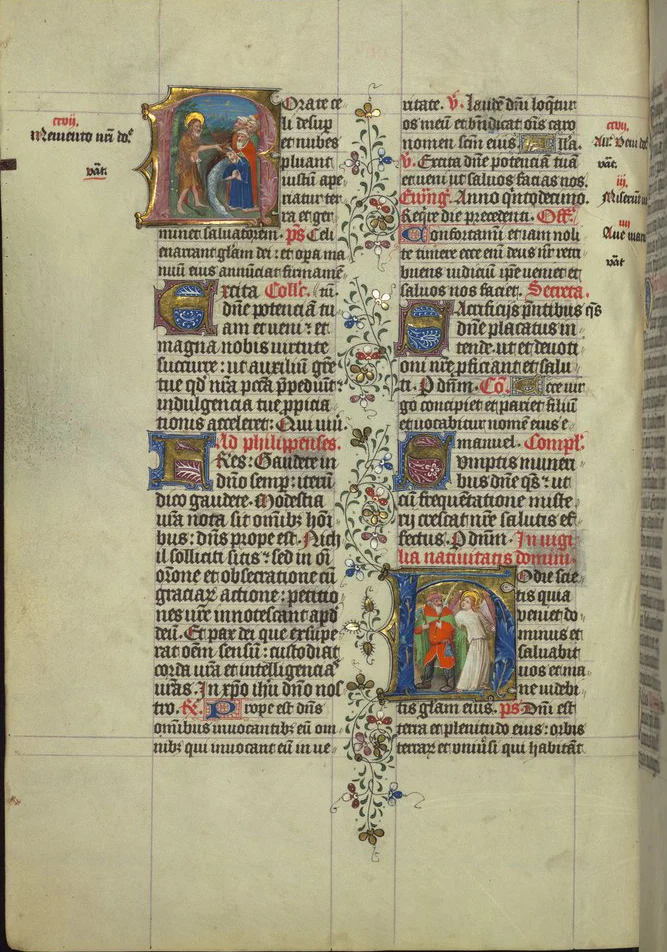 cxvii.
Memento nr̄i do
vāt.
Rorate ce
li desup
et nubes
pluant
iustū ape
riatur ter
ra et ger
minet saluatorem. ps Celi
enarrant glam dei : et opa ma
nuū eius annūciat firmamē
Excita Coll. tū.
dn̄e potenciā tu
am et veni : et
magna nobis virtute
succurre : ut auxiliū grē
tue qd nr̄a pctā p̄pediūt :
indulgencia tue ppicia
tionis acceleret : Qui viu.
Ad philippenses.
Fres : Gaudete in
dn̄o semp : iterū
dico gaudete. Modestia
vr̄a nota sit om̄ibꝫ homi
bus : dn̄s prope est. Nich
il solliciti sitis : sed in oī
orōne et obsecratione cū
graciaꝝ actione : petitio
nes vr̄e innotescant apd
deū. Et pax dei que exsupe
rat oēm sensū : custodiat
corda vr̄a et intelligencias
vr̄as. In xp̄o ihū dn̄o nos
tro. R. Prope est dn̄s
om̄ibus inuocantibꝫ eū om
nibꝫ qui inuocant eū in ve
ritate. v. laudē dn̄i loq̄tur
os meū et bn̄dicat om̄s caro
nomen scm̄ eius. Alla.
v. Excita dn̄e potenciā tuā
et veni ut saluos facias nos.
Ewng. Anno q̄ntodecimo.
Reqre die precedenti. Off.
Confortamī et iam noli
te timere ecce enī deus nr̄ retri
buens iudiciū ip̄e veniet et
saluos nos faciet. Secreta.
Sacrificijs p̄sentibus q̄s
dn̄e placatus in
tende. ut et deuoti
oni nr̄e pficiant et salu
ti. P dn̄m. Cō. Ecce vir
go concipiet et pariet filiū
et vocabitur nomē eius e
manuel. Compl.
Sumptis muneri
bus dn̄e q̄s : ut
cū frequētatione miste
rij crescat nr̄e salutis ef
fectus. P dn̄m. In vigi
lia natiuitatis domini.
Hodie scie
tis quia
veniet do
minus et
saluabit
vos et ma
ne videbi
tis glam eius. ps Dn̄i est
terra et plenitudo eius : orbis
terraꝝ et vniūsi qui habitāt
cxvii.
vāt.
iii.
iiij
Aue mari
vāt